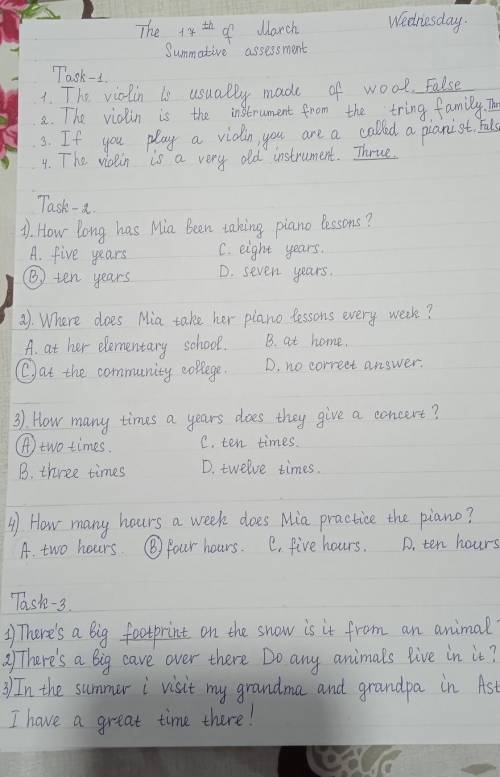 The 17th of March Wednesday.
Summative assessment
Task-1.
1. The violin is usually made of wool. False
2. The violin is the instrument from the tring family.
3. If you play a violin, you are a called a pianist.
4. The violin is a very old instrument. Thrue.
Task-2.
1). How long has Mia been taking piano lessons?
A. five years C. eight years.
B. ten years D. seven years.
2). Where does Mia take her piano lessons every week?
A. at her elementary school. B. at home.
C. at the community college. D. no correct answer.
3). How many times a years does they give a concert?
A two times. C. ten times.
B. three times D. twelve times.
4) How many hours a week does Mia practice the piano?
A. two hours. B four hours. C. five hours. D. ten hours
Task-3.
1) There's a big footprint on the snow is it from an animal
2) There's a big cave over there Do any animals live in it?
3) In the summer i visit my grandma and grandpa in Ast
I have a great time there!